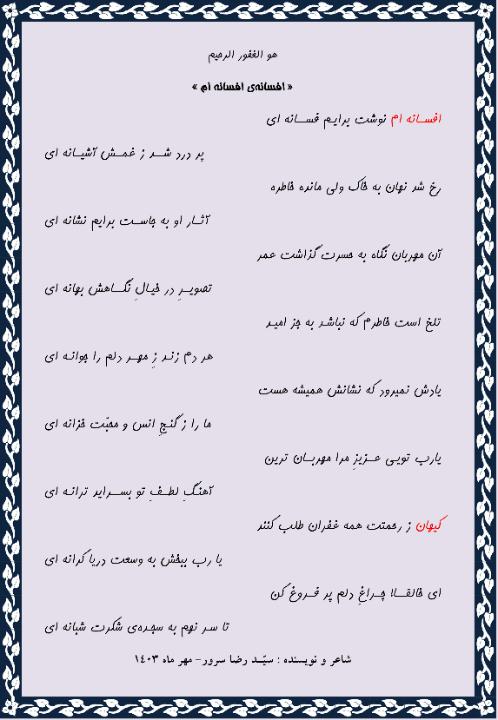 هو الغفور الرحیم
« افسانه‌ی افسانه ام »
افسـانه ام نوشت برایـم فسـانه ای
پر درد شـد ز غمـش آشیـانه ای
رخ شد نهان به خاک ولی مانده خاطره
آثـار او به جاسـت برایم نشانه ای
آن مهربان نگاه به حسرت گذاشت عمر
تصویـرِ در خیالِ نگـاهش بهانه ای
تلخ است خاطرم که نباشد به جز امید
هر دم زنـد زِ مهـر دلم را جوانـه ای
یادش نمیرود که نشانش همیشه هست
ما را ز گنجِ انس و محبّت خزانه ای
یارب تویـی عـزیزِ مرا مهربـان ترین
آهنگِ لطـفِ تو بسـراید ترانـه ای
کیهان ز رحمتت همه غفران طلب کنند
یا رب ببخش به وسعت دریا کرانه ای
ای خالقـا! چـراغِ دلم پر فـروغ کن
تا سر نهم به سجده‌ی شکرت شبانه ای
شاعر و نویسنده : سیّـد رضا سرور- مهر ماه ۱۴۰۳